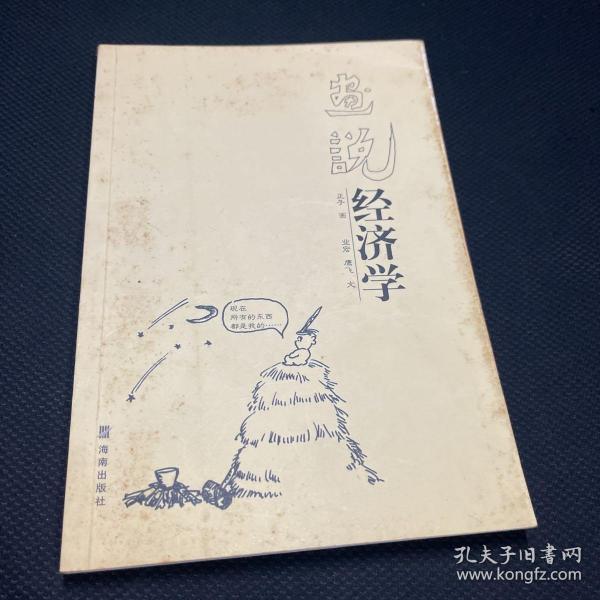 画説
经济学
正子 画
业宏 鹰飞 文
现在
所有的东西
都是我的……
海南出版社
孔夫子旧书网
www.kongfz.com